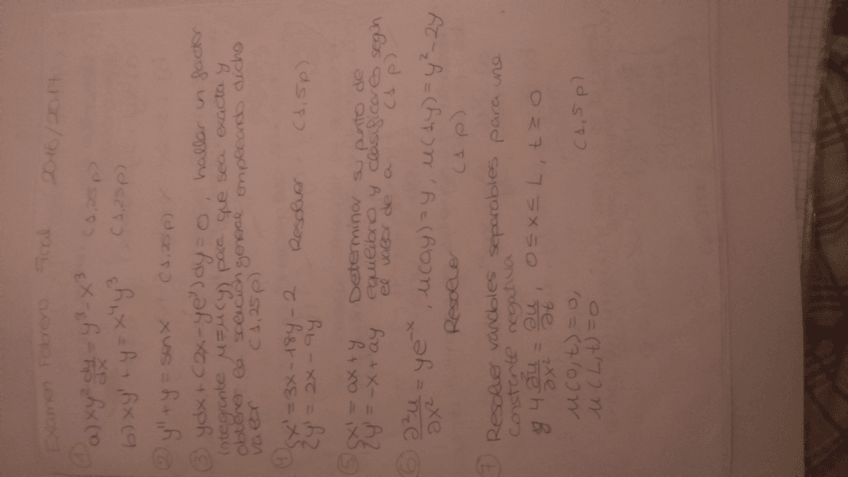 Examen Febrero Final 2016/2017
① a) xy² dy/dx = y³ - x³ (1,25p)
b) xy' + y = x⁴y³ (1,25p)
② y'' + y = sen x (1,25p)
③ ydx + (2x - ye^y)dy = 0, hallar un factor
integrante μ=μ(y) para que sea exacta y
obtener la solución general empleando dicho
valor (1,25p)
④ {x' = 3x - 18y - 2 Resolver (1,5p)
{y' = 2x - 9y
⑤ {x' = ax + y Determinar su punto de
{y' = -x + ay equilibrio y clasificarlo según
el valor de a (1p)
⑥ ∂²u/∂x² = ye^-x, u(0,y) = y, u(1,y) = y² - 2y
Resolver (1p)
⑦ Resolver variables separables para una
constante negativa
4 ∂²u/∂x² = ∂u/∂t, 0 ≤ x ≤ L, t ≥ 0
u(0,t) = 0, (1,5p)
u(L,t) = 0